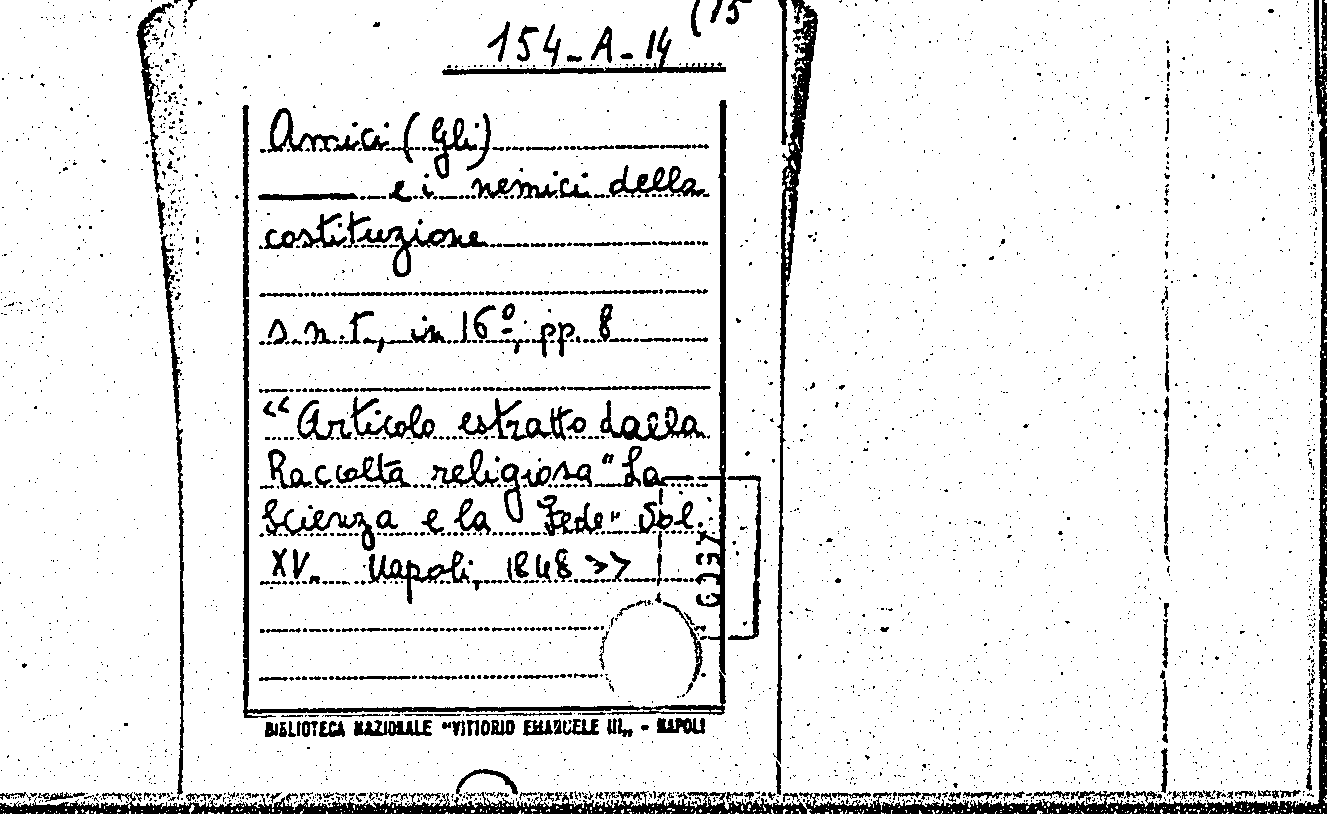 (15
154-A-14
Amici (Gli)
—— e i nemici della
costituzione
s.n.t., in 16º, pp. 8
“Articolo estratto dalla
Raccolta religiosa "La
Scienza e la Fede" Vol.
XV. Napoli, 1848 >>
BIBLIOTECA NAZIONALE "VITTORIO EMANUELE III„ - NAPOLI